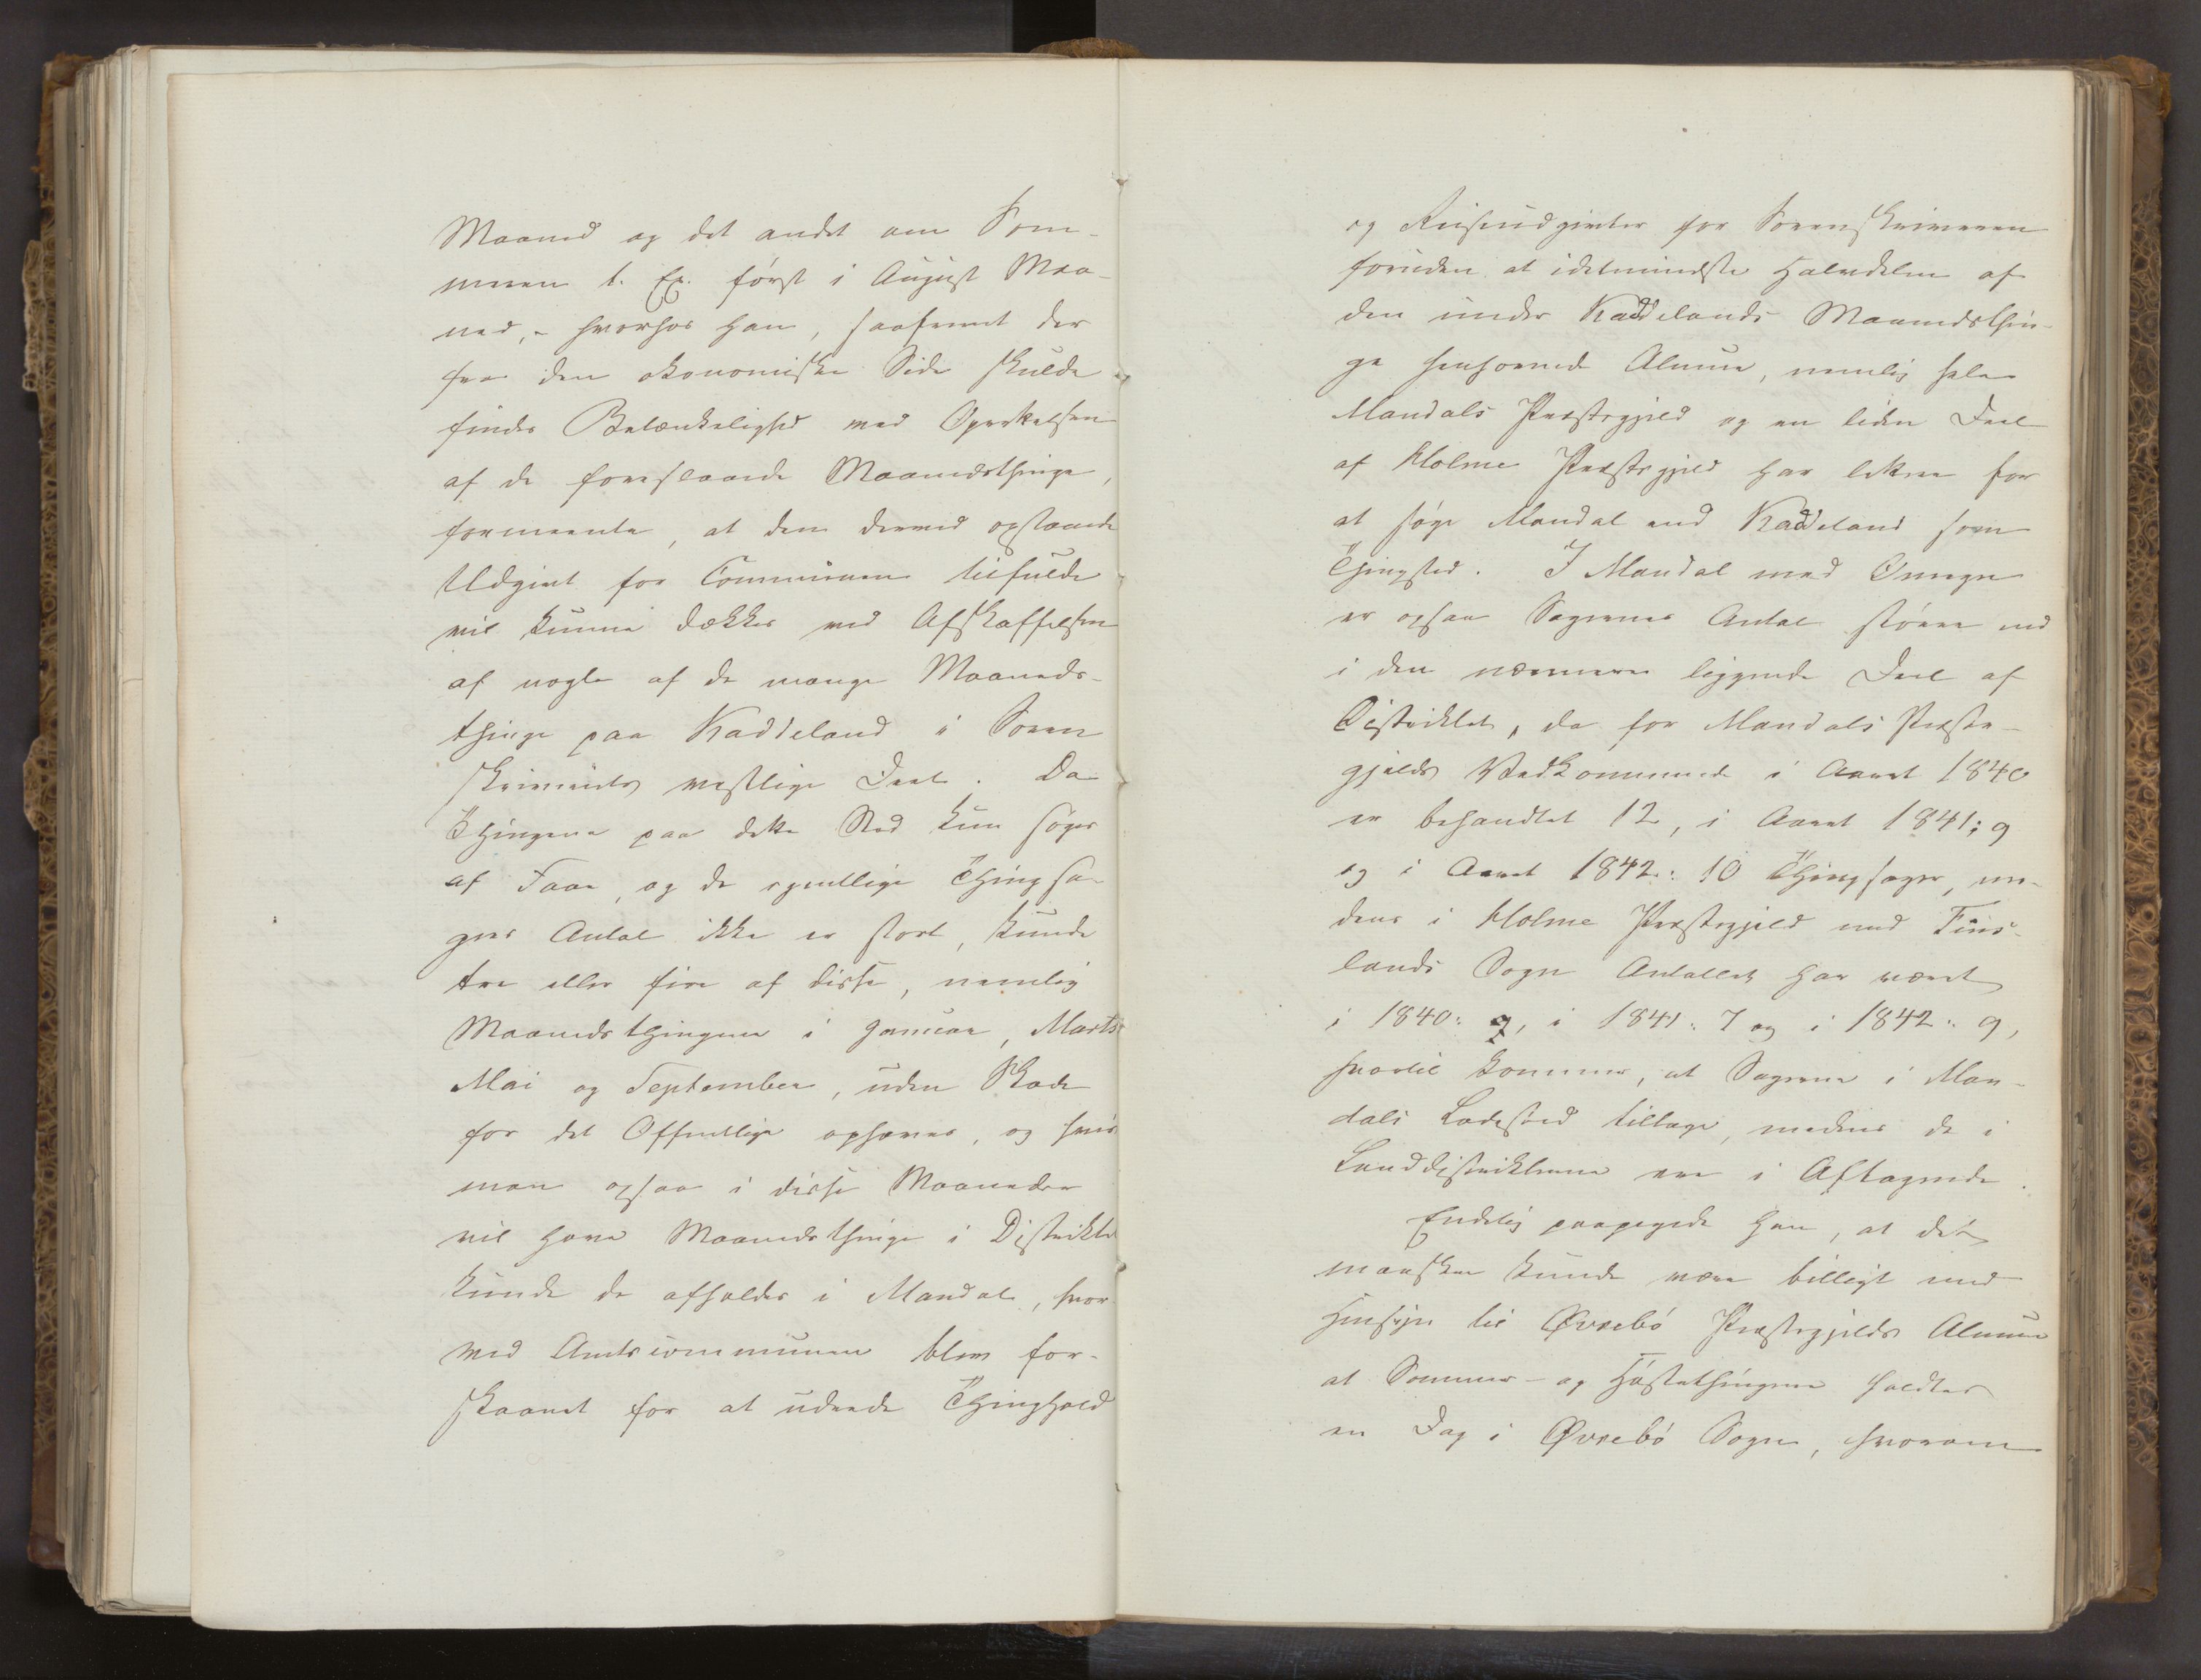 Maaned og det andet om Som-
meren t. Ex. først i August Maa-
ned, - hvorhos han, saafremt der
fra den økonomiske Side skulde
findes Betænkelighed ved Oprettelsen
af de foreslaaede Maanedsthinge,
formeente, at den derved opstaaende
Udgivt for Communen tilfulde
vil kunne dækkes ved Afskaffelsen
af nogle af de mange Maaneds-
thinge paa Kaddeland i Soren
skriveriets vestlige Deel. Da
Thingene paa dette Sted kun søges
af Faae, og de egentlige Thingsa-
gers Antal ikke er stort, kunde
tre eller fire af disse, nemlig
Maanedsthingene i Januar, Marts
Mai og September, uden Skade
for det Offentlige ophæves, og hvis
man ogsaa i disse Maaneder
vil have Maanedsthinge i Distriktet
kunde de afholdes i Mandal, hvor
ved Amtscommunen blev for-
skaanet for at udrede Thinghold
og Reiseudgivter for Sorenskriveren
foruden at idetmindste Halvdelen af
den under Kaddelands Maanedsthin-
ge henhørende Almue, nemlig hele
Mandals Præstegjeld og en liden Deel
af Holme Præstegjeld har lettere for
at søge Mandal end Kaddeland som
Thingsted. I Mandal med Omegn
er ogsaa Sagernes Antal større end
i den nærmere liggende Deel af
Distriktet, da for Mandals Præste-
gjelds Vedkommende i Aaret 1840
er behandlet 12, i Aaret 1841: 9
og i Aaret 1842: 10 Thingsager, me-
dens i Holme Præstegjeld med Fins-
lands Sogn Antallet har været
i 1840: 9, i 1841: 7 og i 1842: 9,
hvortil kommer, at Sagerne i Man-
dals Ladested tiltage, medens de i
Landdistrikterne ere i Aftagende.
Endelig paapegede han, at det
maaskee kunde være billigt med
Hensyn til Øvrebø Præstegjelds Almue
at Sommer- og Høstethingene holdtes
en Dag i Øvrebø Sogn, hvorom